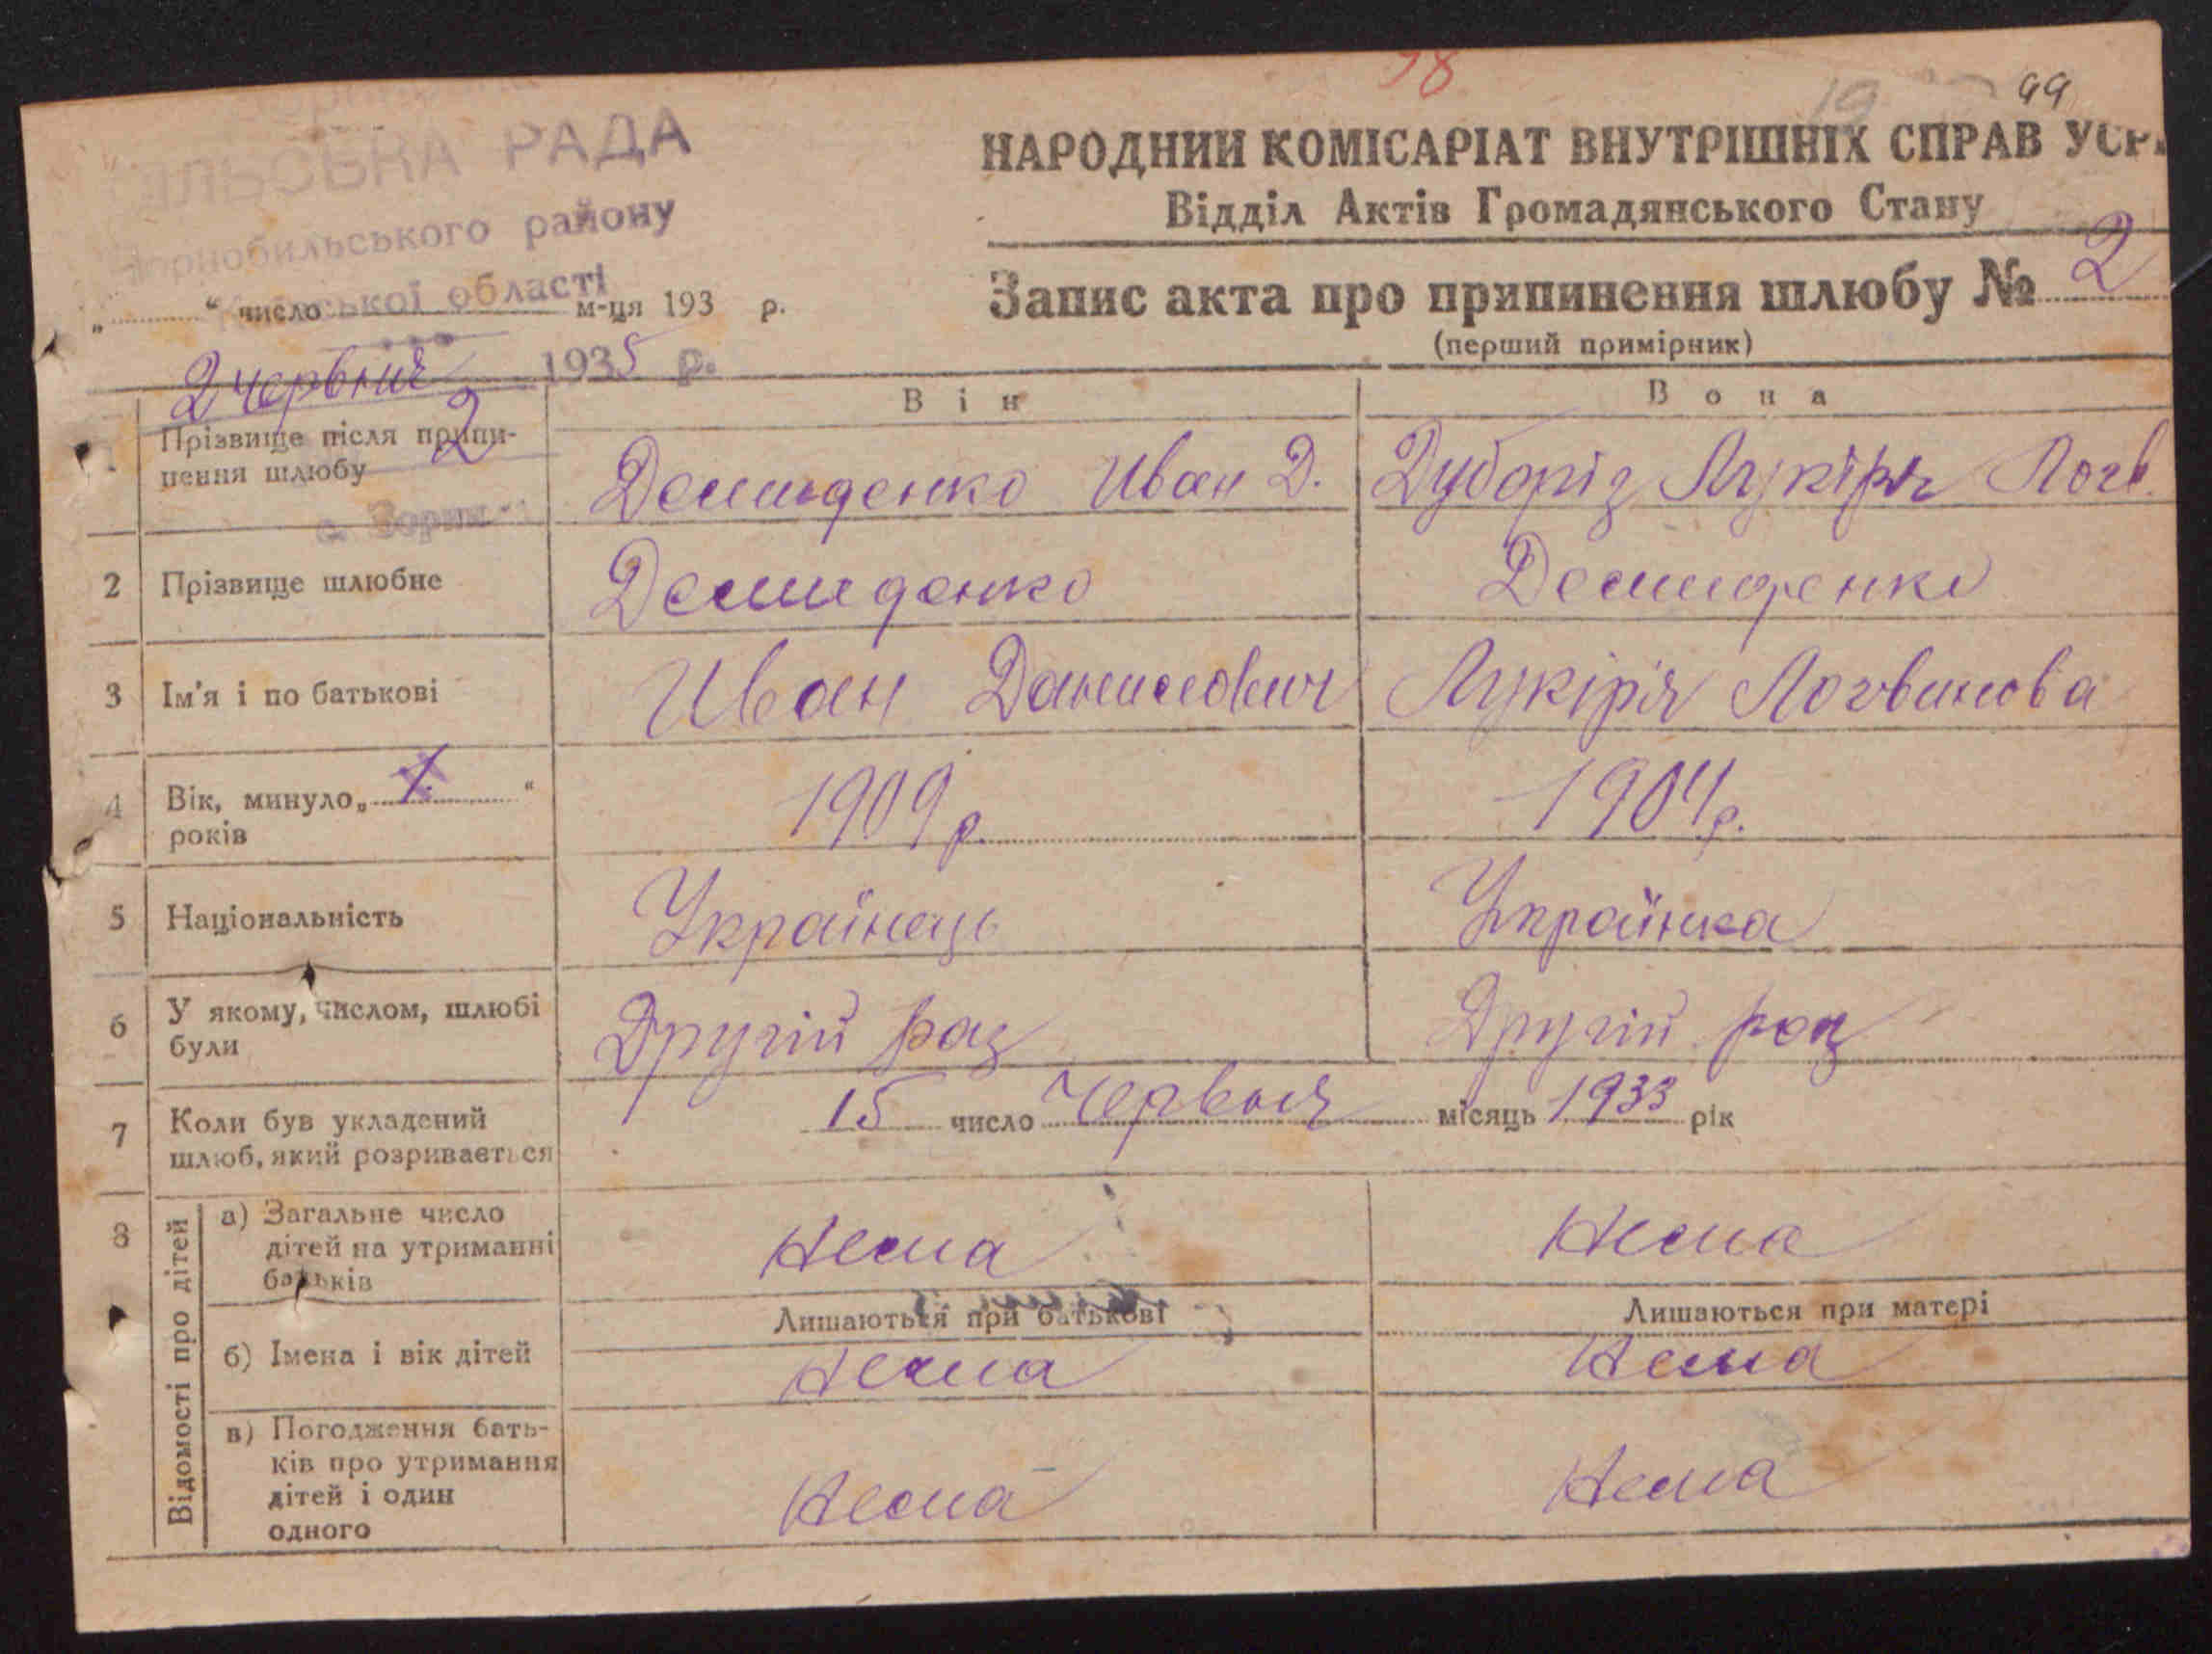 98
19
99
РАДА
Чорнобильського району
Київської області
НАРОДНИЙ КОМІСАРІАТ ВНУТРІШНІХ СПРАВ УСРР
Відділ Актів Громадянського Стану
Запис акта про припинення шлюбу № 2
(перший примірник)
„ “ число м-ця 193 р.
2 червня 1935 р.
2
с. Зорин
Він Вона
1 Прізвище після припинення шлюбу Демиденко Иван Д. Дуборіз Лукіря Логв.
2 Прізвище шлюбне Демиденко Демиденко
3 Ім'я і по батькові Иван Данилович Лукіря Логвинова
4 Вік, минуло „ “ років 1909 р. 1904 р.
5 Національність Українець Українка
6 У якому, числом, шлюбі були Другій раз Другій раз
7 Коли був укладений шлюб, який розривається 15 число Червня місяць 1933 рік
8 Відомості про дітей
а) Загальне число дітей на утриманні батьків Нема Нема
Лишаються при батькові Лишаються при матері
б) Імена і вік дітей Нема Нема
в) Погодження батьків про утримання дітей і один одного Нема Нема